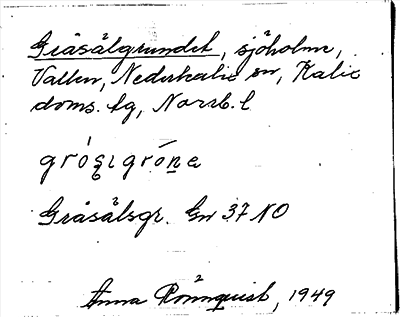 Gråsälgrundet, sjöholme,
Vallen, Nederkalix sn, Kalix
doms. tg, Norrb. l
Gråsälsgr. Gw 37 NO
Anna Rönnquist, 1949